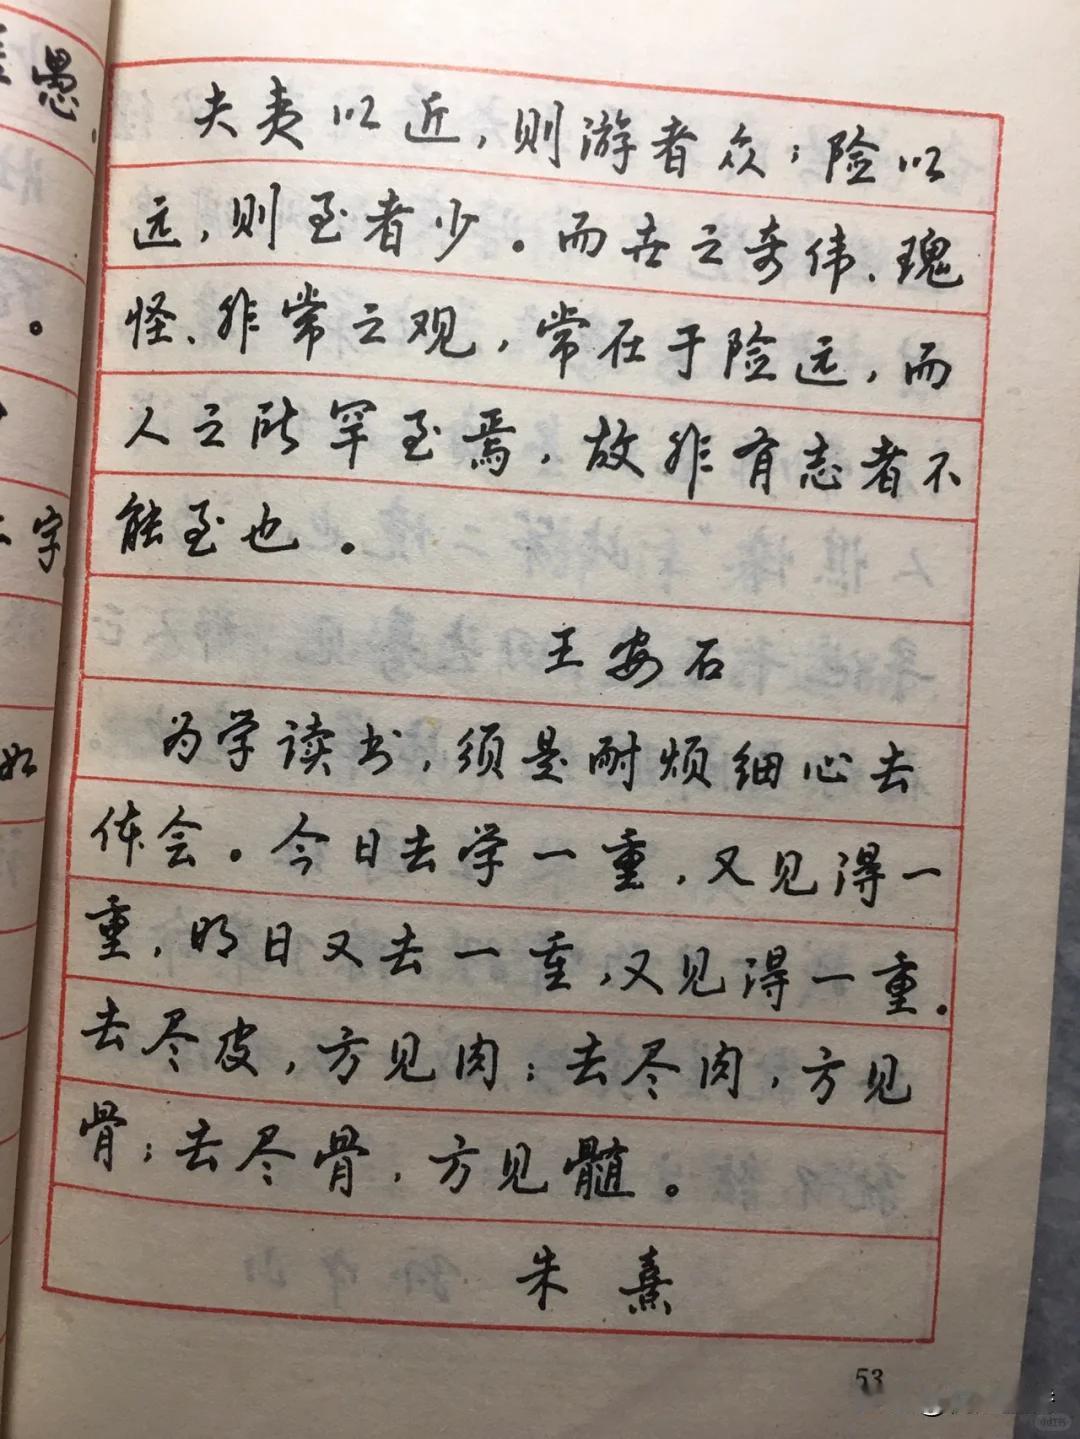 愚
字
如
夫夷以近，则游者众；险以
远，则至者少。而世之奇伟、瑰
怪、非常之观，常在于险远，而
人之所罕至焉，故非有志者不
能至也。
王安石
为学读书，须是耐烦细心去
体会。今日去学一重，又见得一
重，明日又去一重，又见得一重。
去尽皮，方见肉；去尽肉，方见
骨；去尽骨，方见髓。
朱熹
53
小红书